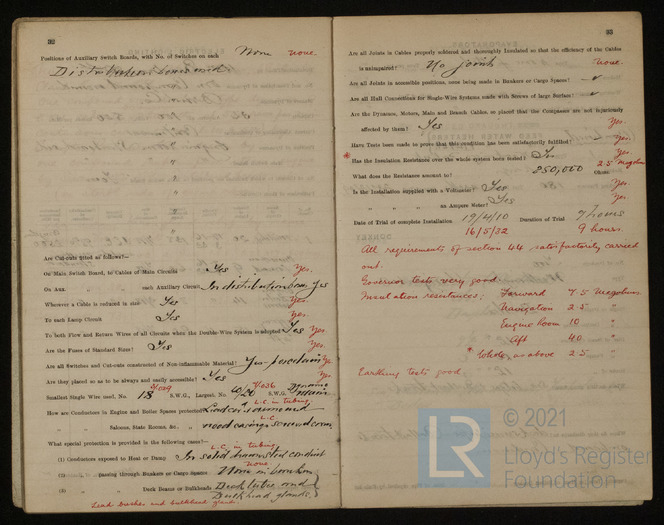 92
Positions of Auxiliary Switch Boards, with No. of Switches on each None none.
Distribution boxes used.
Are Cut-outs fitted as follows?—
On Main Switch Board, to Cables of Main Circuits Yes Yes.
On Aux. " " each Auxiliary Circuit In distribution boxes Yes
Wherever a Cable is reduced in size Yes Yes.
To each Lamp Circuit Yes Yes.
To both Flow and Return Wires of all Circuits when the Double-Wire System is adopted Yes Yes.
Are the Fuses of Standard Sizes? Yes Yes.
Are all Switches and Cut-outs constructed of Non-inflammable Material? Yes porcelain Yes
Are they placed so as to be always and easily accessible? Yes Yes
Smallest Single Wire used, No. 18 S.W.G., Largest, No. S.W.G. Dynamo main
L.C. in tubing.
How are Conductors in Engine and Boiler Spaces protected? Lead cov. & armoured
L.C.
" " Saloons, State Rooms, &c., " wood casing & screwed cover
What special protection is provided in the following cases?—
L.C. in tubing
(1) Conductors exposed to Heat or Damp In solid
none
(2) " passing through Bunkers or Cargo Spaces None in bunkers
(3) " " Deck Beams or Bulkheads Deck tubes and
Bulkhead glands.
Lead bushes and bulkhead glands.
93
Are all Joints in Cables properly soldered and thoroughly Insulated so that the efficiency of the Cables
is unimpaired? No joints none.
Are all Joints in accessible positions, none being made in Bunkers or Cargo Spaces? ✓
Are all Hull Connections for Single-Wire Systems made with Screws of large Surface? ✓
Are the Dynamos, Motors, Main and Branch Cables, so placed that the Compasses are not injuriously
affected by them? Yes Yes.
Have Tests been made to prove that this condition has been satisfactorily fulfilled? Yes.
* Has the Insulation Resistance over the whole system been tested? Yes Yes.
What does the Resistance amount to? 250,000 Ohms. 2.5 megohms
Is the Installation supplied with a Voltmeter? Yes Yes.
" " " an Ampere Meter? Yes Yes.
Date of Trial of complete Installation 19/4/10 Duration of Trial 7 hours
16/5/32 9 hours.
All requirements of section 44, satisfactorily carried
out.
Governor tests very good
Insulation resistances; Forward 7.5 Megohms.
Navigation 2.5 "
Engine Room 10 "
Aft 40 "
* Whole, as above 2.5 "
Earthing tests good.
LR
© 2021
Lloyd's Register
Foundation